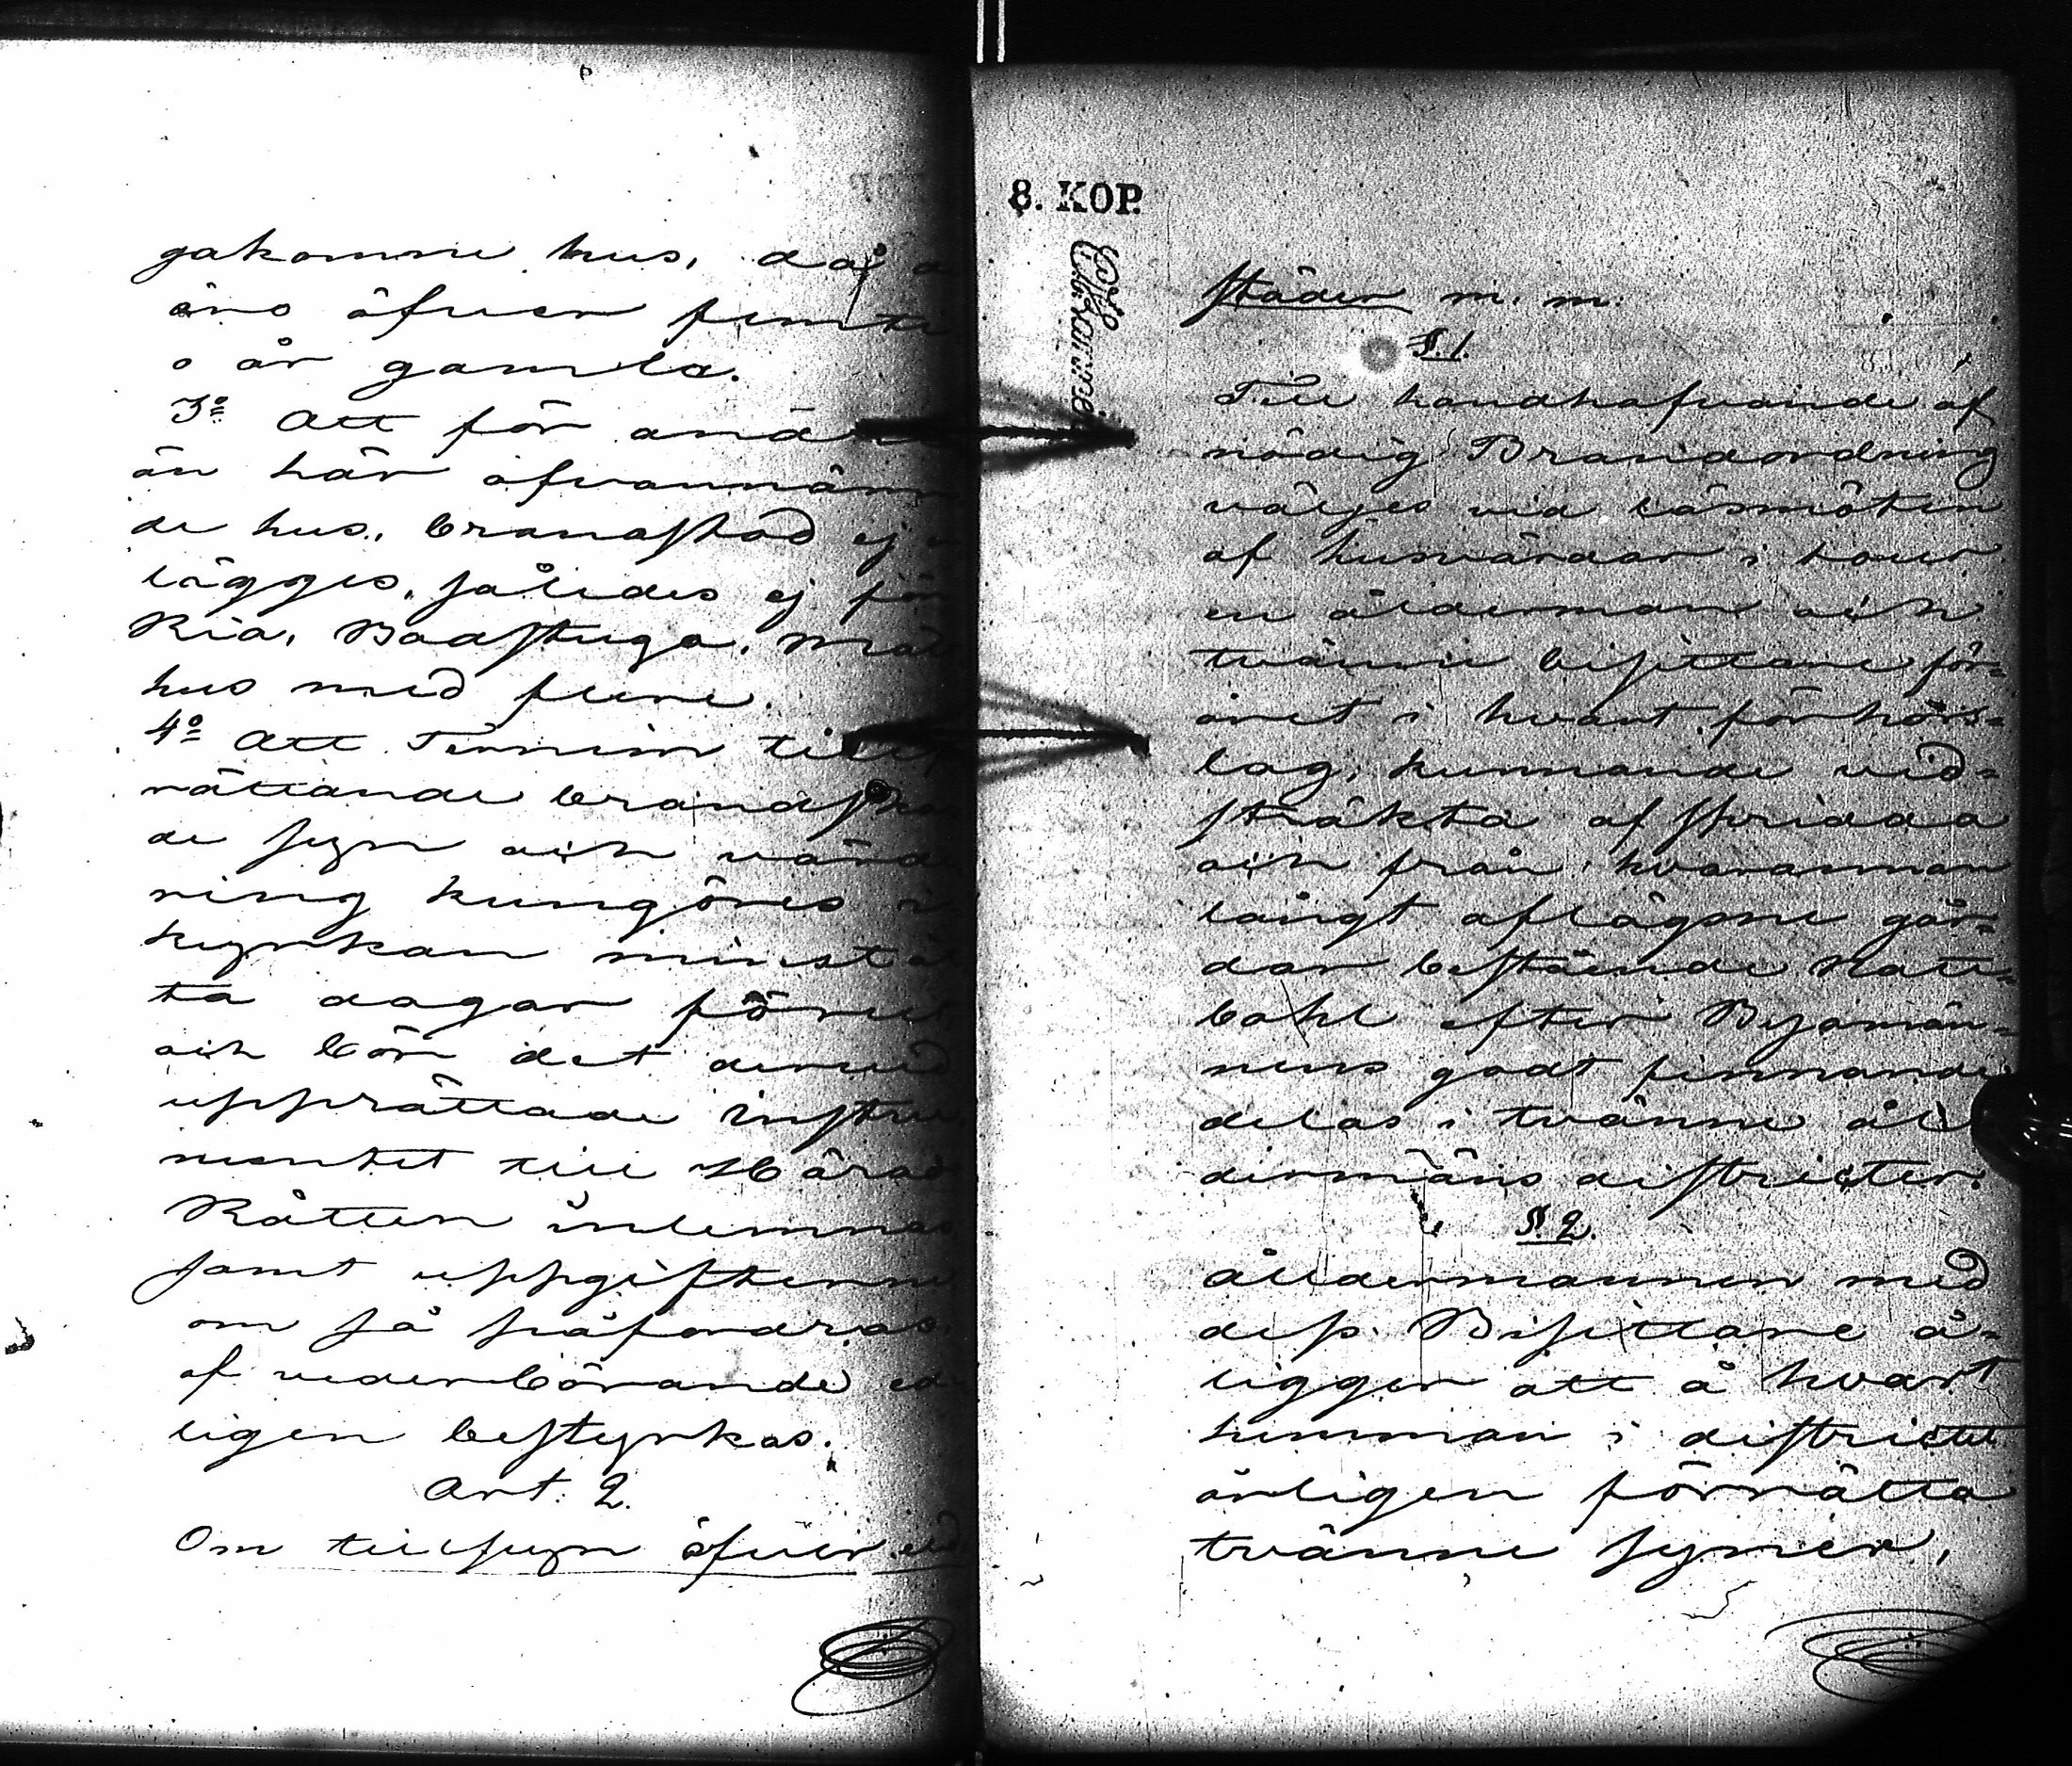 gakomne hus, då
äro öfver femti
o år gamla.
3o Att för andra
än här ofvannämn
de hus, brandstod ej
lägges, således ej för
Ria, Badstuga, Malt
hus med flere.
4o Att Termin till
rättande brandsko
de syn och värde
ring kungöres i
kyrkan minst åt
ta dagar förut
och bör det dervid
upprättade instru
mentet till Härads
Rätten inlemnas
samt uppgifterne
om så påfordras,
af vederbörande ed
ligen bestyrkas.
Art: 2.
Om tillsyn öfver eld
8. KOP.
städer m. m.
§. 1.
Till handhafvande af
nödig Brandordning
väljes vid läsmöten
af husvärdar i rotur
en ålderman och
tvänne bisittare för
året i hvart förhörs=
lag, kunnande vid=
sträkta af skridda
och från hvarannan
långt aflägsne går=
dar bestående Rote=
bohl efter Byamän=
nens godt finnande
delas i tvänne ål
dermäns districter.
§. 2.
Åldermannen med
dess Bisittare å=
ligger att å hvart
hemman i districtet
årligen förrätta
tvänne syner,